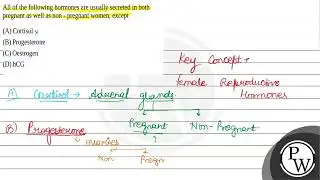 All of the following hormones are usually secreted in both
pregnant as well as non - pregnant women, except
(A) Cortisol
(B) Progesterone
(C) Oestrogen
(D) hCG
Key Concept :
female Reproductive
Hormones
A) Cortisol → Adrenal glands
Pregnant Non-Pregnant
?
B) Progesterone
ovaries
Non Pregn
PW